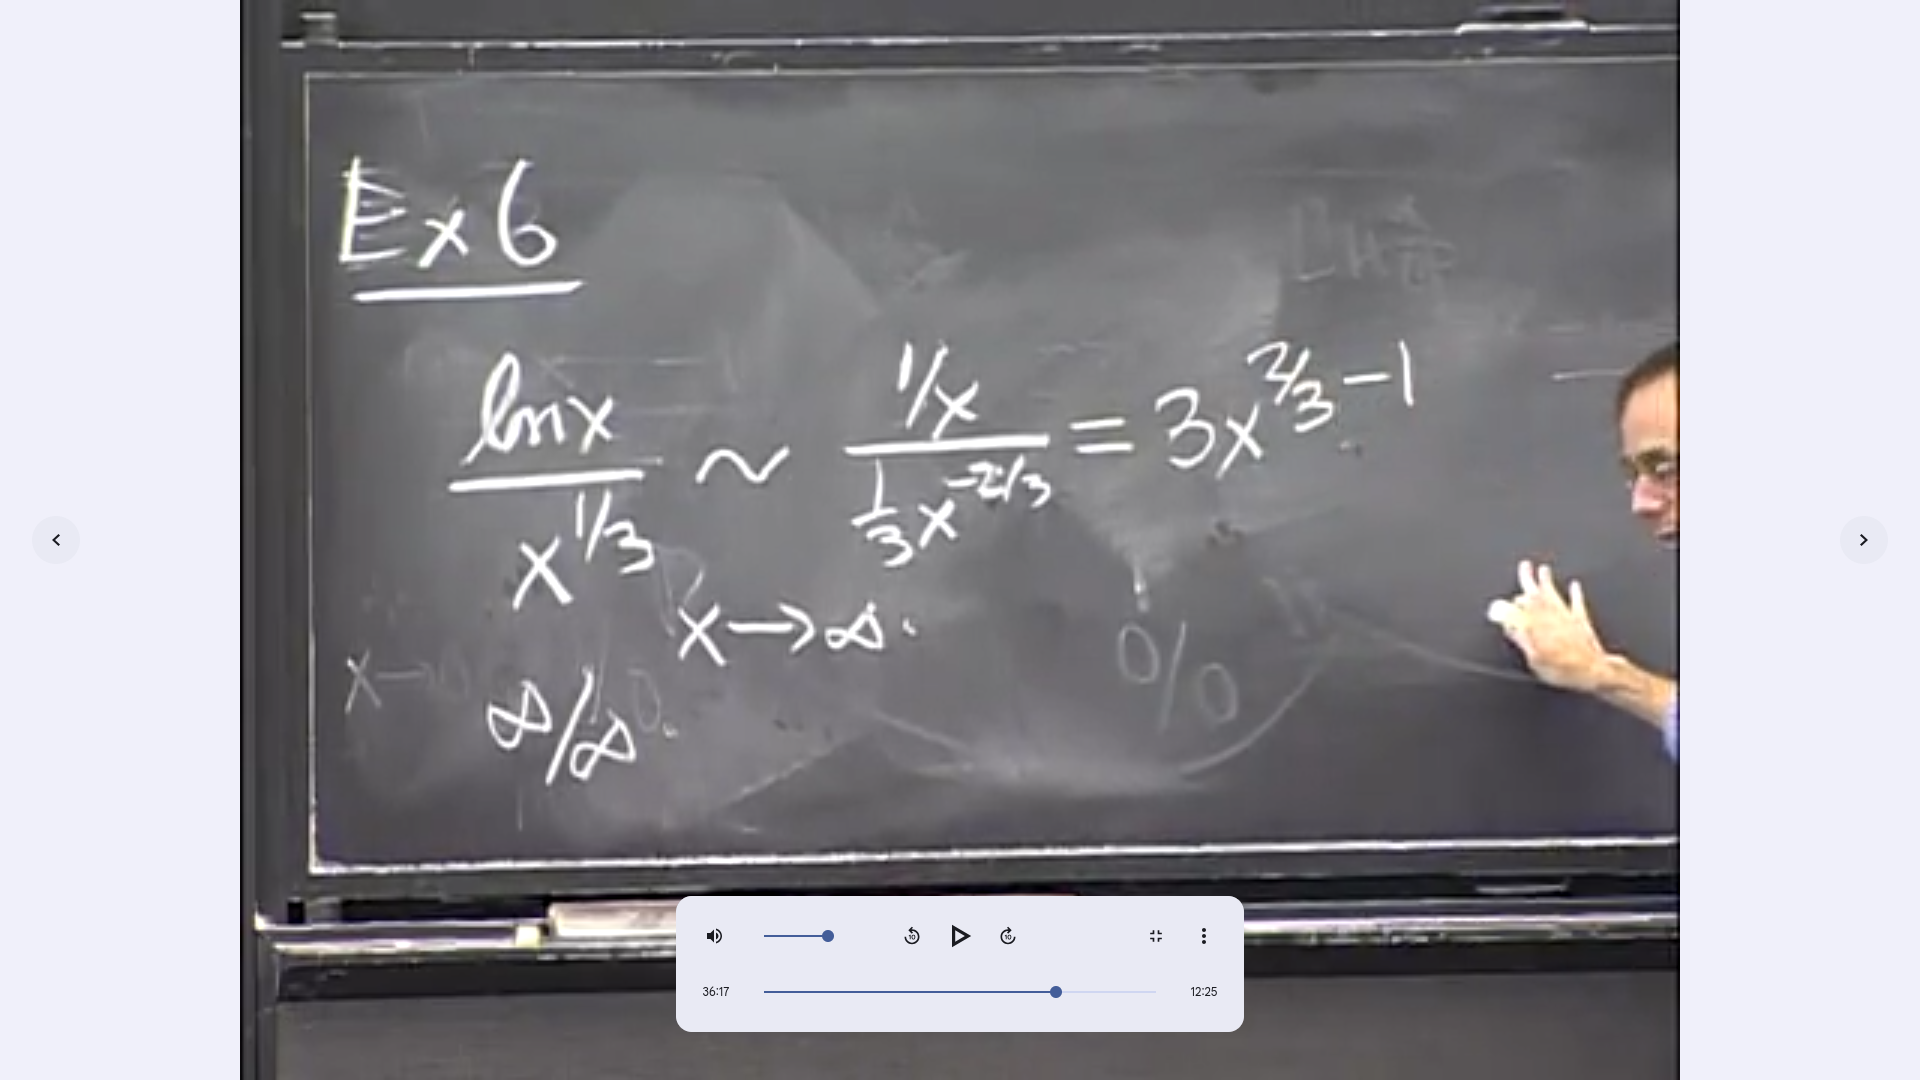 Ex 6
ln x / x^1/3 ~ 1/x / 1/3 x^-2/3 = 3x^2/3 - 1
x → ∞.
∞/∞.
x →
0/0
10
10
36:17
12:25